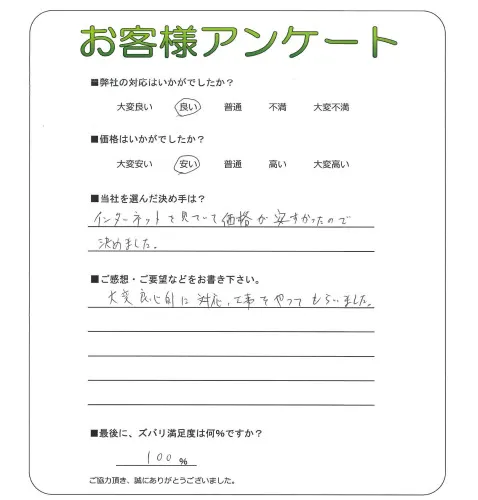 お客様アンケート
■弊社の対応はいかがでしたか？
大変良い 良い 普通 不満 大変不満
■価格はいかがでしたか？
大変安い 安い 普通 高い 大変高い
■当社を選んだ決め手は？
インターネットで見ていて価格が安すかったので
決めました。
■ご感想・ご要望などをお書き下さい。
大変良心的に対応、工事をやってもらいました。
■最後に、ズバリ満足度は何%ですか？
100%
ご協力頂き、誠にありがとうございました。